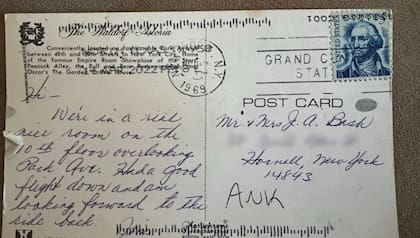 The Waldorf Astoria
Conveniently located on fashionable Park Avenue
between 49th and 50th Streets in New York City. Home
of the famous Empire Room Showplace of the
Peacock Alley, the Bull and Bear
Oscar's The Garden
N.Y.
1969
GRAND
STAT
UNITED STATES
POST CARD
Hi –
We're in a real
nice room on the
floor overlooking
Park Ave. Had a good
flight down and am
looking forward to the
ride back.
Mr. & Mrs J. A. Bash
Hornell, New York
14843
ANK